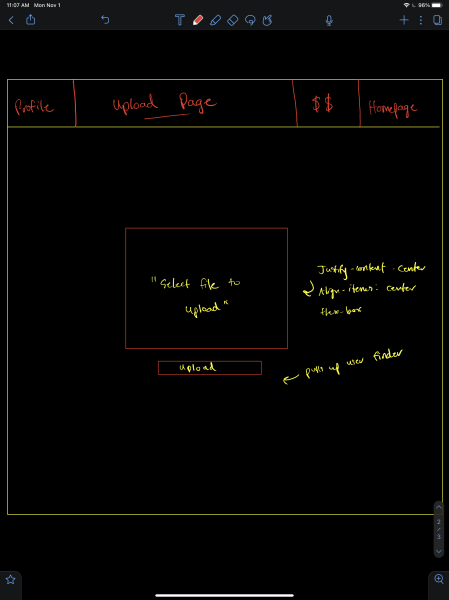 11:07 AM Mon Nov 1
96%
Profile
Upload Page
$$
Homepage
"Select file to
upload"
Justify-content: center
Align-items: center
flex-box
upload
pulls up user finder
2
/
3